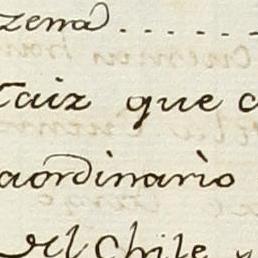 zena . . . . . . .
raiz que c
aordinario
del Chile y